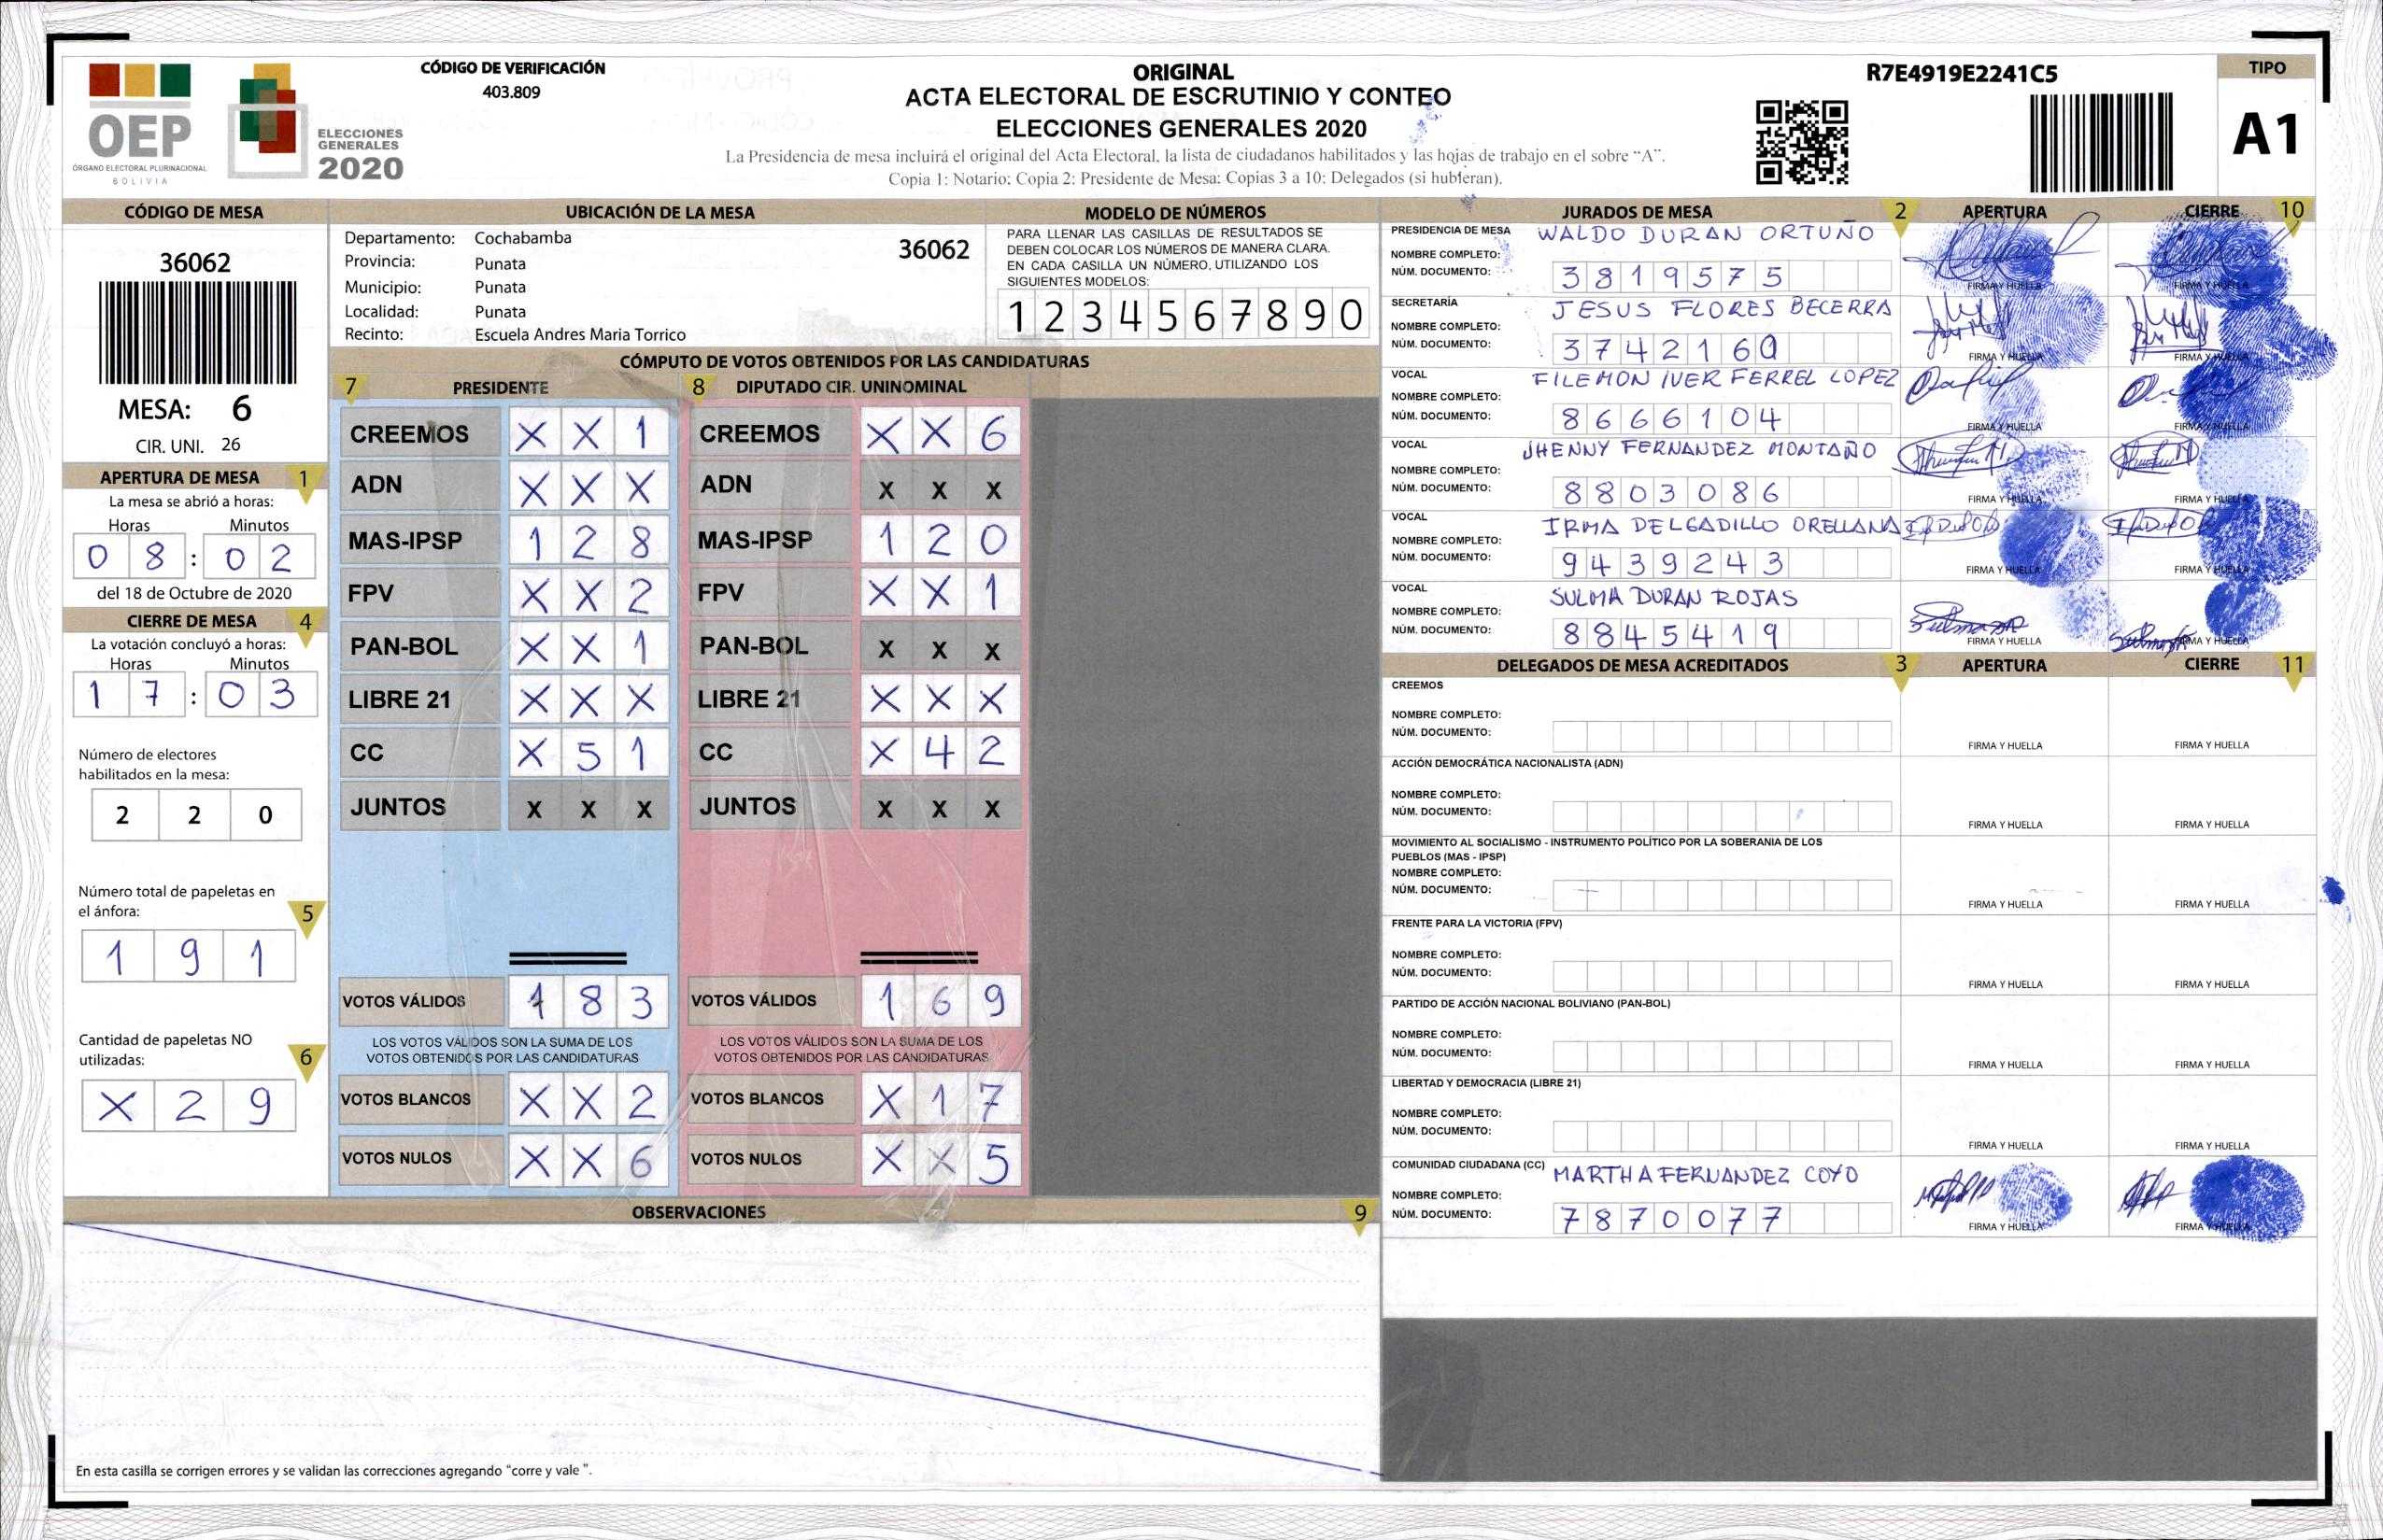 CÓDIGO DE VERIFICACIÓN
403.809
OEP
ÓRGANO ELECTORAL PLURINACIONAL
BOLIVIA
ELECCIONES
GENERALES
2020
ORIGINAL
ACTA ELECTORAL DE ESCRUTINIO Y CONTEO
ELECCIONES GENERALES 2020
La Presidencia de mesa incluirá el original del Acta Electoral, la lista de ciudadanos habilitados y las hojas de trabajo en el sobre “A”.
Copia 1: Notario; Copia 2: Presidente de Mesa; Copias 3 a 10: Delegados (si hubieran).
R7E4919E2241C5
TIPO
A1
CÓDIGO DE MESA
36062
MESA: 6
CIR. UNI. 26
APERTURA DE MESA 1
La mesa se abrió a horas:
Horas Minutos
0 8 : 0 2
del 18 de Octubre de 2020
CIERRE DE MESA 4
La votación concluyó a horas:
Horas Minutos
1 7 : 0 3
Número de electores
habilitados en la mesa:
2 2 0
Número total de papeletas en
el ánfora:
5
1 9 1
Cantidad de papeletas NO
utilizadas:
6
X 2 9
UBICACIÓN DE LA MESA
Departamento: Cochabamba
36062
Provincia: Punata
Municipio: Punata
Localidad: Punata
Recinto: Escuela Andres Maria Torrico
MODELO DE NÚMEROS
PARA LLENAR LAS CASILLAS DE RESULTADOS SE
DEBEN COLOCAR LOS NÚMEROS DE MANERA CLARA.
EN CADA CASILLA UN NÚMERO, UTILIZANDO LOS
SIGUIENTES MODELOS:
1 2 3 4 5 6 7 8 9 0
CÓMPUTO DE VOTOS OBTENIDOS POR LAS CANDIDATURAS
7 PRESIDENTE
CREEMOS X X 1
ADN X X X
MAS-IPSP 1 2 8
FPV X X 2
PAN-BOL X X 1
LIBRE 21 X X X
CC X 5 1
JUNTOS X X X
VOTOS VÁLIDOS 1 8 3
LOS VOTOS VÁLIDOS SON LA SUMA DE LOS
VOTOS OBTENIDOS POR LAS CANDIDATURAS
VOTOS BLANCOS X X 2
VOTOS NULOS X X 6
8 DIPUTADO CIR. UNINOMINAL
CREEMOS X X 6
ADN X X X
MAS-IPSP 1 2 0
FPV X X 1
PAN-BOL X X X
LIBRE 21 X X X
CC X 4 2
JUNTOS X X X
VOTOS VÁLIDOS 1 6 9
LOS VOTOS VÁLIDOS SON LA SUMA DE LOS
VOTOS OBTENIDOS POR LAS CANDIDATURAS
VOTOS BLANCOS X 1 7
VOTOS NULOS X X 5
OBSERVACIONES 9
En esta casilla se corrigen errores y se validan las correcciones agregando “corre y vale ”.
JURADOS DE MESA 2 APERTURA CIERRE 10
PRESIDENCIA DE MESA WALDO DURAN ORTUÑO
NOMBRE COMPLETO:
NÚM. DOCUMENTO: 3 8 1 9 5 7 5
FIRMA Y HUELLA FIRMA Y HUELLA
SECRETARÍA JESUS FLORES BECERRA
NOMBRE COMPLETO:
NÚM. DOCUMENTO: 3 7 4 2 1 6 0
FIRMA Y HUELLA FIRMA Y HUELLA
VOCAL FILEMON IVER FERREL LOPEZ
NOMBRE COMPLETO:
NÚM. DOCUMENTO: 8 6 6 6 1 0 4
FIRMA Y HUELLA FIRMA Y HUELLA
VOCAL JHENNY FERNANDEZ MONTAÑO
NOMBRE COMPLETO:
NÚM. DOCUMENTO: 8 8 0 3 0 8 6
FIRMA Y HUELLA FIRMA Y HUELLA
VOCAL IRMA DELGADILLO ORELLANA
NOMBRE COMPLETO:
NÚM. DOCUMENTO: 9 4 3 9 2 4 3
FIRMA Y HUELLA FIRMA Y HUELLA
VOCAL SULMA DURAN ROJAS
NOMBRE COMPLETO:
NÚM. DOCUMENTO: 8 8 4 5 4 1 9
FIRMA Y HUELLA FIRMA Y HUELLA
DELEGADOS DE MESA ACREDITADOS 3 APERTURA CIERRE 11
CREEMOS
NOMBRE COMPLETO:
NÚM. DOCUMENTO:
FIRMA Y HUELLA FIRMA Y HUELLA
ACCIÓN DEMOCRÁTICA NACIONALISTA (ADN)
NOMBRE COMPLETO:
NÚM. DOCUMENTO:
FIRMA Y HUELLA FIRMA Y HUELLA
MOVIMIENTO AL SOCIALISMO - INSTRUMENTO POLÍTICO POR LA SOBERANIA DE LOS
PUEBLOS (MAS - IPSP)
NOMBRE COMPLETO:
NÚM. DOCUMENTO:
FIRMA Y HUELLA FIRMA Y HUELLA
FRENTE PARA LA VICTORIA (FPV)
NOMBRE COMPLETO:
NÚM. DOCUMENTO:
FIRMA Y HUELLA FIRMA Y HUELLA
PARTIDO DE ACCIÓN NACIONAL BOLIVIANO (PAN-BOL)
NOMBRE COMPLETO:
NÚM. DOCUMENTO:
FIRMA Y HUELLA FIRMA Y HUELLA
LIBERTAD Y DEMOCRACIA (LIBRE 21)
NOMBRE COMPLETO:
NÚM. DOCUMENTO:
FIRMA Y HUELLA FIRMA Y HUELLA
COMUNIDAD CIUDADANA (CC) MARTHA FERNANDEZ COYO
NOMBRE COMPLETO:
NÚM. DOCUMENTO: 7 8 7 0 0 7 7
FIRMA Y HUELLA FIRMA Y HUELLA